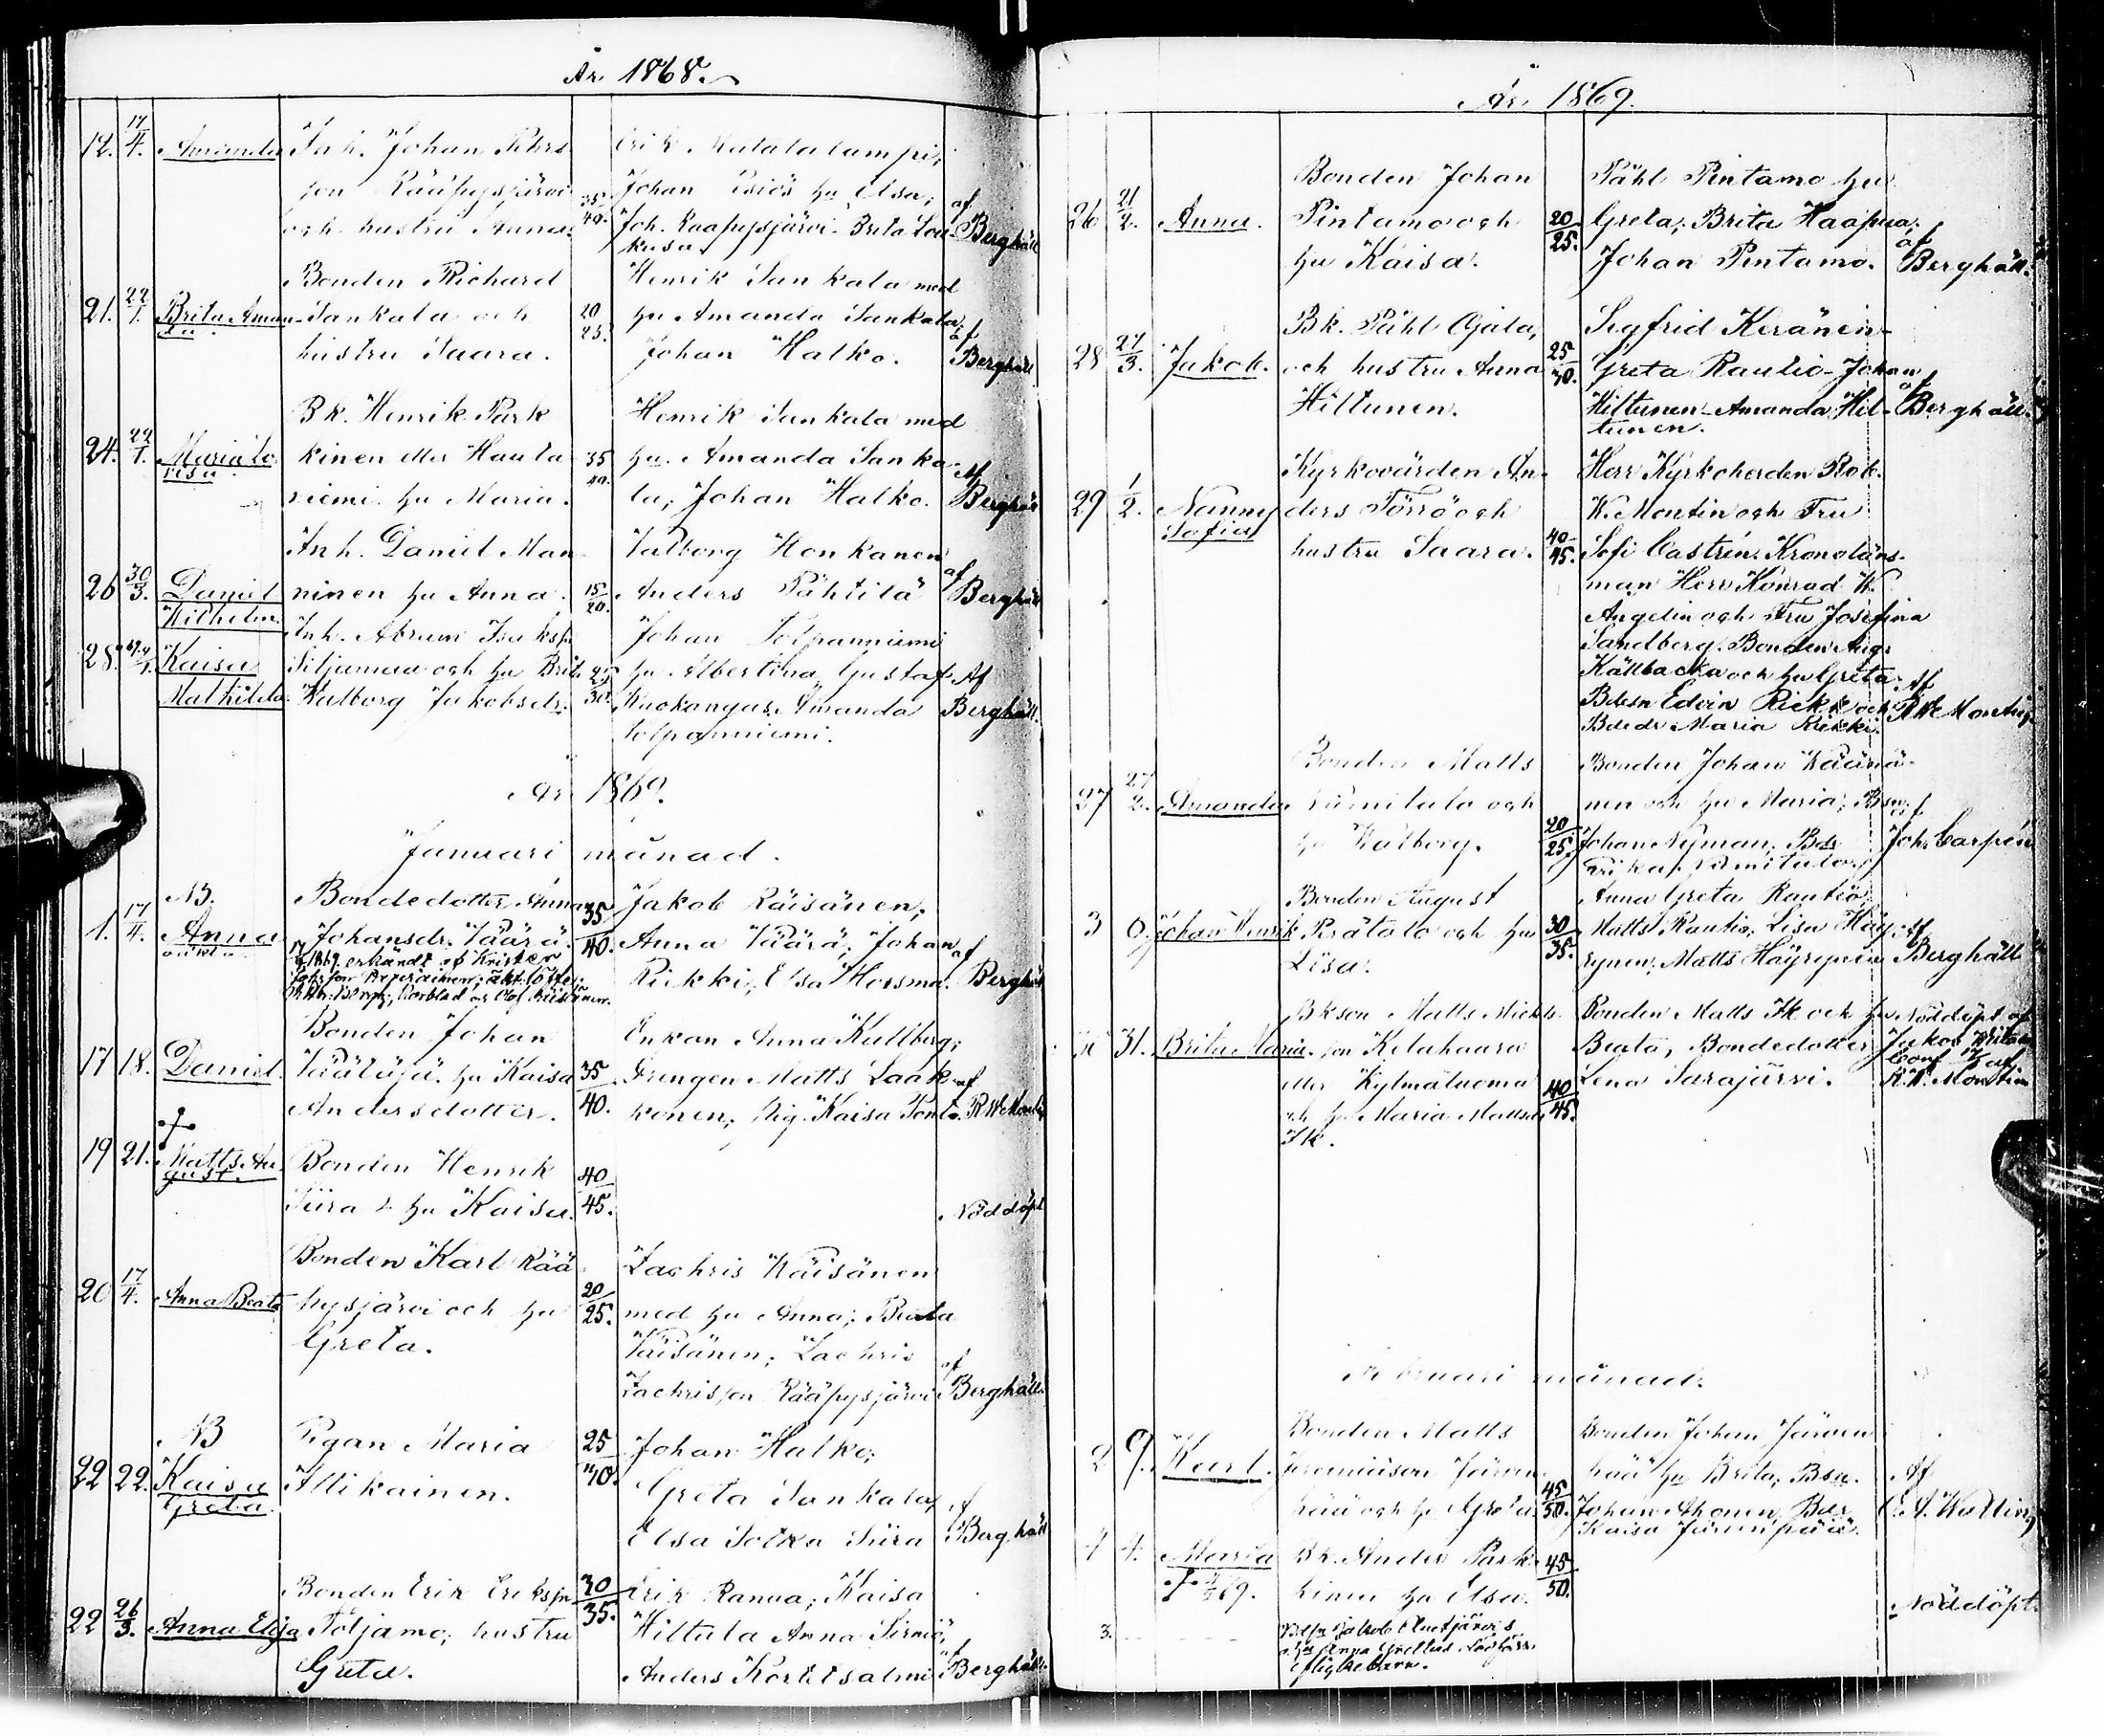 År 1868.
12. 17/4. Amanda Inh. Johan Pehrs- Erik Matalalampi;
son Rääpysjärvi 35/40. Johan hu Elsa; af
och hustru Anna. Joh. Raapysjärvi Brita Lou- Berghäll
kusa
Bonden Richard Henrik Sankala med
21. 22/1. Brita Aman- Sankala och 20/25. hu Amanda Sankala; af
da. hustru Saara. Johan Halko. Berghäll
Bk. Henrik Park Henrik Sankala med
24. 22/1. Maria Lo- kinen eller Hauta 35/40. hu Amanda Sanka- Af
visa niemi hu Maria. la; Johan Halko. Berghäll
Inh. Daniel Man- Valborg Honkanen
26 30/3. Daniel ninen hu Anna. 15/20. Anders Pähtilä af Berghäll
Wilhelm Inh. Abram Isaksn Johan Tolpanniemi
28. Kaisa Siljamaa och hu Brita 25/30. hu Albertina Gustaf Af
Mathilda. Walborg Jakobsdr. Kuokangas Amanda Berghäll.
Tolpanniemi.
År 1869.
Januari månad.
NB. Bondedotter Anna 35/40. Jakob Räisänen;
1. 17/4. Anna Johansdr. Väärä. Anna Väärä; Johan af
oäkta 1869 erkändt af Krister Rikki; Elsa Horsma. Berghäll
Bonden Johan Enkan Anna Kullberg;
17 18. Daniel. Väätäjä hu Kaisa 35/40. Drengen Matts Laak- af
Andersdotter. konen; Pig. Kaisa R W Montin
19 21. Matts Au- Bonden Henrik 40/45.
gust. Siira & hu Kaisa. Nöddöpt
Bonden Karl Rää- Zachris Väisänen
20 17/4. Anna Beata pysjärvi och hu 20/25. med hu Anna; Beata
Greta. Väisänen; Zachris af
Zachrisson Rääpysjärvi Berghäll.
NB Pigan Maria 25/30. Johan Halko;
22 22. Kaisa Attikainen. Greta Sankala; af
Greta. Elsa Sofia Siira Berghäll
Bonden Erik Eriksn 30/35. Erik Ranua; Kaisa
22 26/3. Anna Elisa Töljamo; hustru Hiltula Anna Sirniö; af
Greta. Anders Korteesalmi Berghäll.
År 1869.
Bonden Johan Påhl Pintamo hu
26 21/2. Anna. Pintamo och 20/25. Greta; Brita Haapua; af
hu Kaisa. Johan Pintamo. Berghäll.
Bk. Påhl Ojala, Sigfrid Keränen-
28 27/3. Jakob. och hustru Anna 25/30. Greta Rautio-Johan af
Hiltunen. Hiltunen-Amanda Hil- Berghäll.
tunen.
Kyrkovärden An- Herr Kyrkoherden Rob.
29 1/2. Nanny ders Törrö och W. Montin och Fru
Sofia hustru Saara. 40/45. Sofi Castrén. Kronoläns-
man Herr Konrad W.
Angelin och Fru Josefina
Sandberg. Bonden Aug.
Källbacka och hu Greta Af
Bdesn Edvin Rickki och R W Montin
Bdedr Maria Rickki.
Bonden Matts Bonden Johan Väänä-
27 27/2. Amanda Nimitalo och nen och hu Maria; Bsn. af
hu Walborg. 20/25. Johan Nyman; Bdr Joh. Carpén
Bonden August Anna Greta Rautio;
3 0. Johan Henrik Perätalo och hu 30/35. Matts Rautio; Lisa Häy- Af
Lisa. rynen; Matts Häyrynen Berghäll
Bkson Matts Bonden Matts Ik och hu Nöddöpt af
31. Brita Maria. son Kelahaara Beata; Bondedotter Jakob
eller Kylmäluoma 40/45. Lena Sarajärvi. Conf. af
och hu Maria Mattsdr R. W. Montin
Ik.
Februari månad.
Bonden Matts Bonden Johan Järven
2 9. Karl. Jeremiasson Järven- pää hu Brita; Bsn. Af
pää och hu Greta 45/50. Johan Ahonen; Bdr
Kaisa Järvenpää.
4 4. Maria Bk. Anders Park- 45/50.
69. kinen hu Elsa. Nöddöpt.
3.